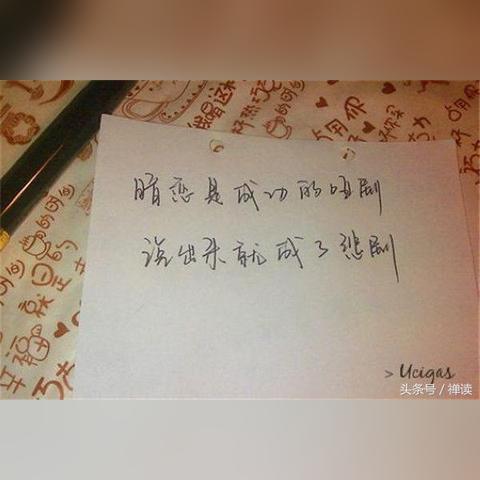 暗恋是成功的哑剧
说出来就成了悲剧
> Ucigas
头条号 / 禅读